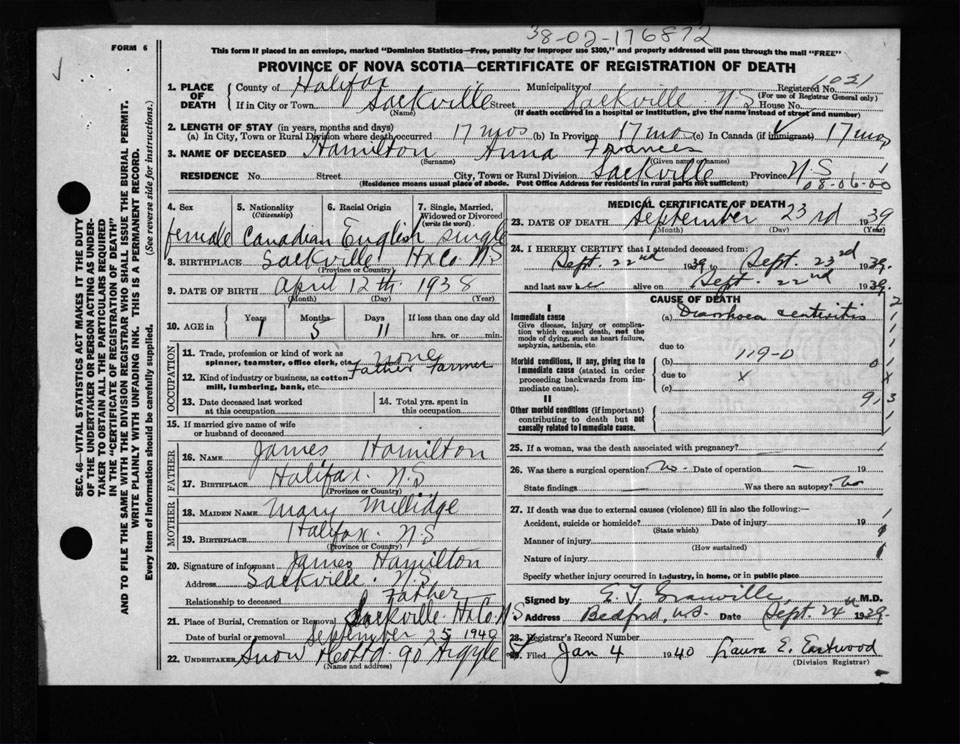 38-02-176872
FORM 6
This form if placed in an envelope, marked "Dominion Statistics—Free, penalty for improper use $300," and properly addressed will pass through the mail "FREE"
PROVINCE OF NOVA SCOTIA—CERTIFICATE OF REGISTRATION OF DEATH
SEC. 46—VITAL STATISTICS ACT MAKES IT THE DUTY
OF THE UNDERTAKER OR PERSON ACTING AS UNDER-
TAKER TO OBTAIN ALL THE PARTICULARS REQUIRED
IN THE "CERTIFICATE OF REGISTRATION OF DEATH"
AND TO FILE THE SAME WITH THE DIVISION REGISTRAR WHO SHALL ISSUE THE BURIAL PERMIT.
WRITE PLAINLY WITH UNFADING INK. THIS IS A PERMANENT RECORD.
Every item of information should be carefully supplied. (See reverse side for instructions.)
1. PLACE OF DEATH County of Halifax Municipality of Registered No. 1031
(For use of Registrar General only)
If in City or Town Sackville Street Sackville N.S House No.
(Name) (If death occurred in a hospital or institution, give the name instead of street and number)
2. LENGTH OF STAY (in years, months and days)
(a) In City, Town or Rural Division where death occurred 17 mos (b) In Province 17 mo (c) In Canada (if immigrant) 17 mos
3. NAME OF DECEASED Hamilton Anna Frances
(Surname) (Given name/names)
RESIDENCE No. Street City, Town or Rural Division Sackville Province N.S
(Residence means usual place of abode. Post Office Address for residents in rural parts not sufficient) 08-06-00
4. Sex 5. Nationality (Citizenship) 6. Racial Origin 7. Single, Married, Widowed or Divorced (write the word)
female Canadian English single
8. BIRTHPLACE Sackville Hx Co N.S
(Province or Country)
9. DATE OF BIRTH April 12th 1938
(Month) (Day) (Year)
10. AGE in Years Months Days If less than one day old
1 5 11 hrs. or min.
OCCUPATION
11. Trade, profession or kind of work as spinner, teamster, office clerk, etc. none
12. Kind of industry or business, as cotton-mill, lumbering, bank, etc. Father Farmer
13. Date deceased last worked at this occupation 14. Total yrs. spent in this occupation
15. If married give name of wife or husband of deceased
FATHER
16. NAME James Hamilton
17. BIRTHPLACE Halifax N.S
(Province or Country)
MOTHER
18. MAIDEN NAME Mary Millidge
19. BIRTHPLACE Halifax N.S
(Province or Country)
20. Signature of informant James Hamilton
Address Sackville N.S
Relationship to deceased Father
21. Place of Burial, Cremation or Removal Sackville Hx Co N S
Date of burial or removal September 25 1940
22. UNDERTAKER Snow & Co Ltd 90 Argyle
(Name and address)
MEDICAL CERTIFICATE OF DEATH
23. DATE OF DEATH September 23rd 1939
(Month) (Day) (Year)
24. I HEREBY CERTIFY that I attended deceased from:
Sept. 22nd 1939 Sept. 23rd 1939
and last saw alive on Sept. 22nd 1939
CAUSE OF DEATH
I
Immediate cause
Give disease, injury or complication which caused death, not the mode of dying, such as heart failure, asphyxia, asthenia, etc.
(a) Diarrhoea & enteritis
due to
Morbid conditions, if any, giving rise to immediate cause (stated in order proceeding backwards from immediate cause).
(b) 119-0
due to x
(c)
II
Other morbid conditions (if important) contributing to death but not causally related to immediate cause.
25. If a woman, was the death associated with pregnancy?
26. Was there a surgical operation? No Date of operation — 19
State findings — Was there an autopsy? No
27. If death was due to external causes (violence) fill in also the following:—
Accident, suicide or homicide? Date of injury 19
(State which)
Manner of injury
(How sustained)
Nature of injury
Specify whether injury occurred in industry, in home, or in public place
Signed by E. T. Granville M.D.
Address Bedford, N.S. Date Sept. 24th 1939
28. Registrar's Record Number
29. Filed Jan 4 1940 Laura E. Eastwood
(Division Registrar)